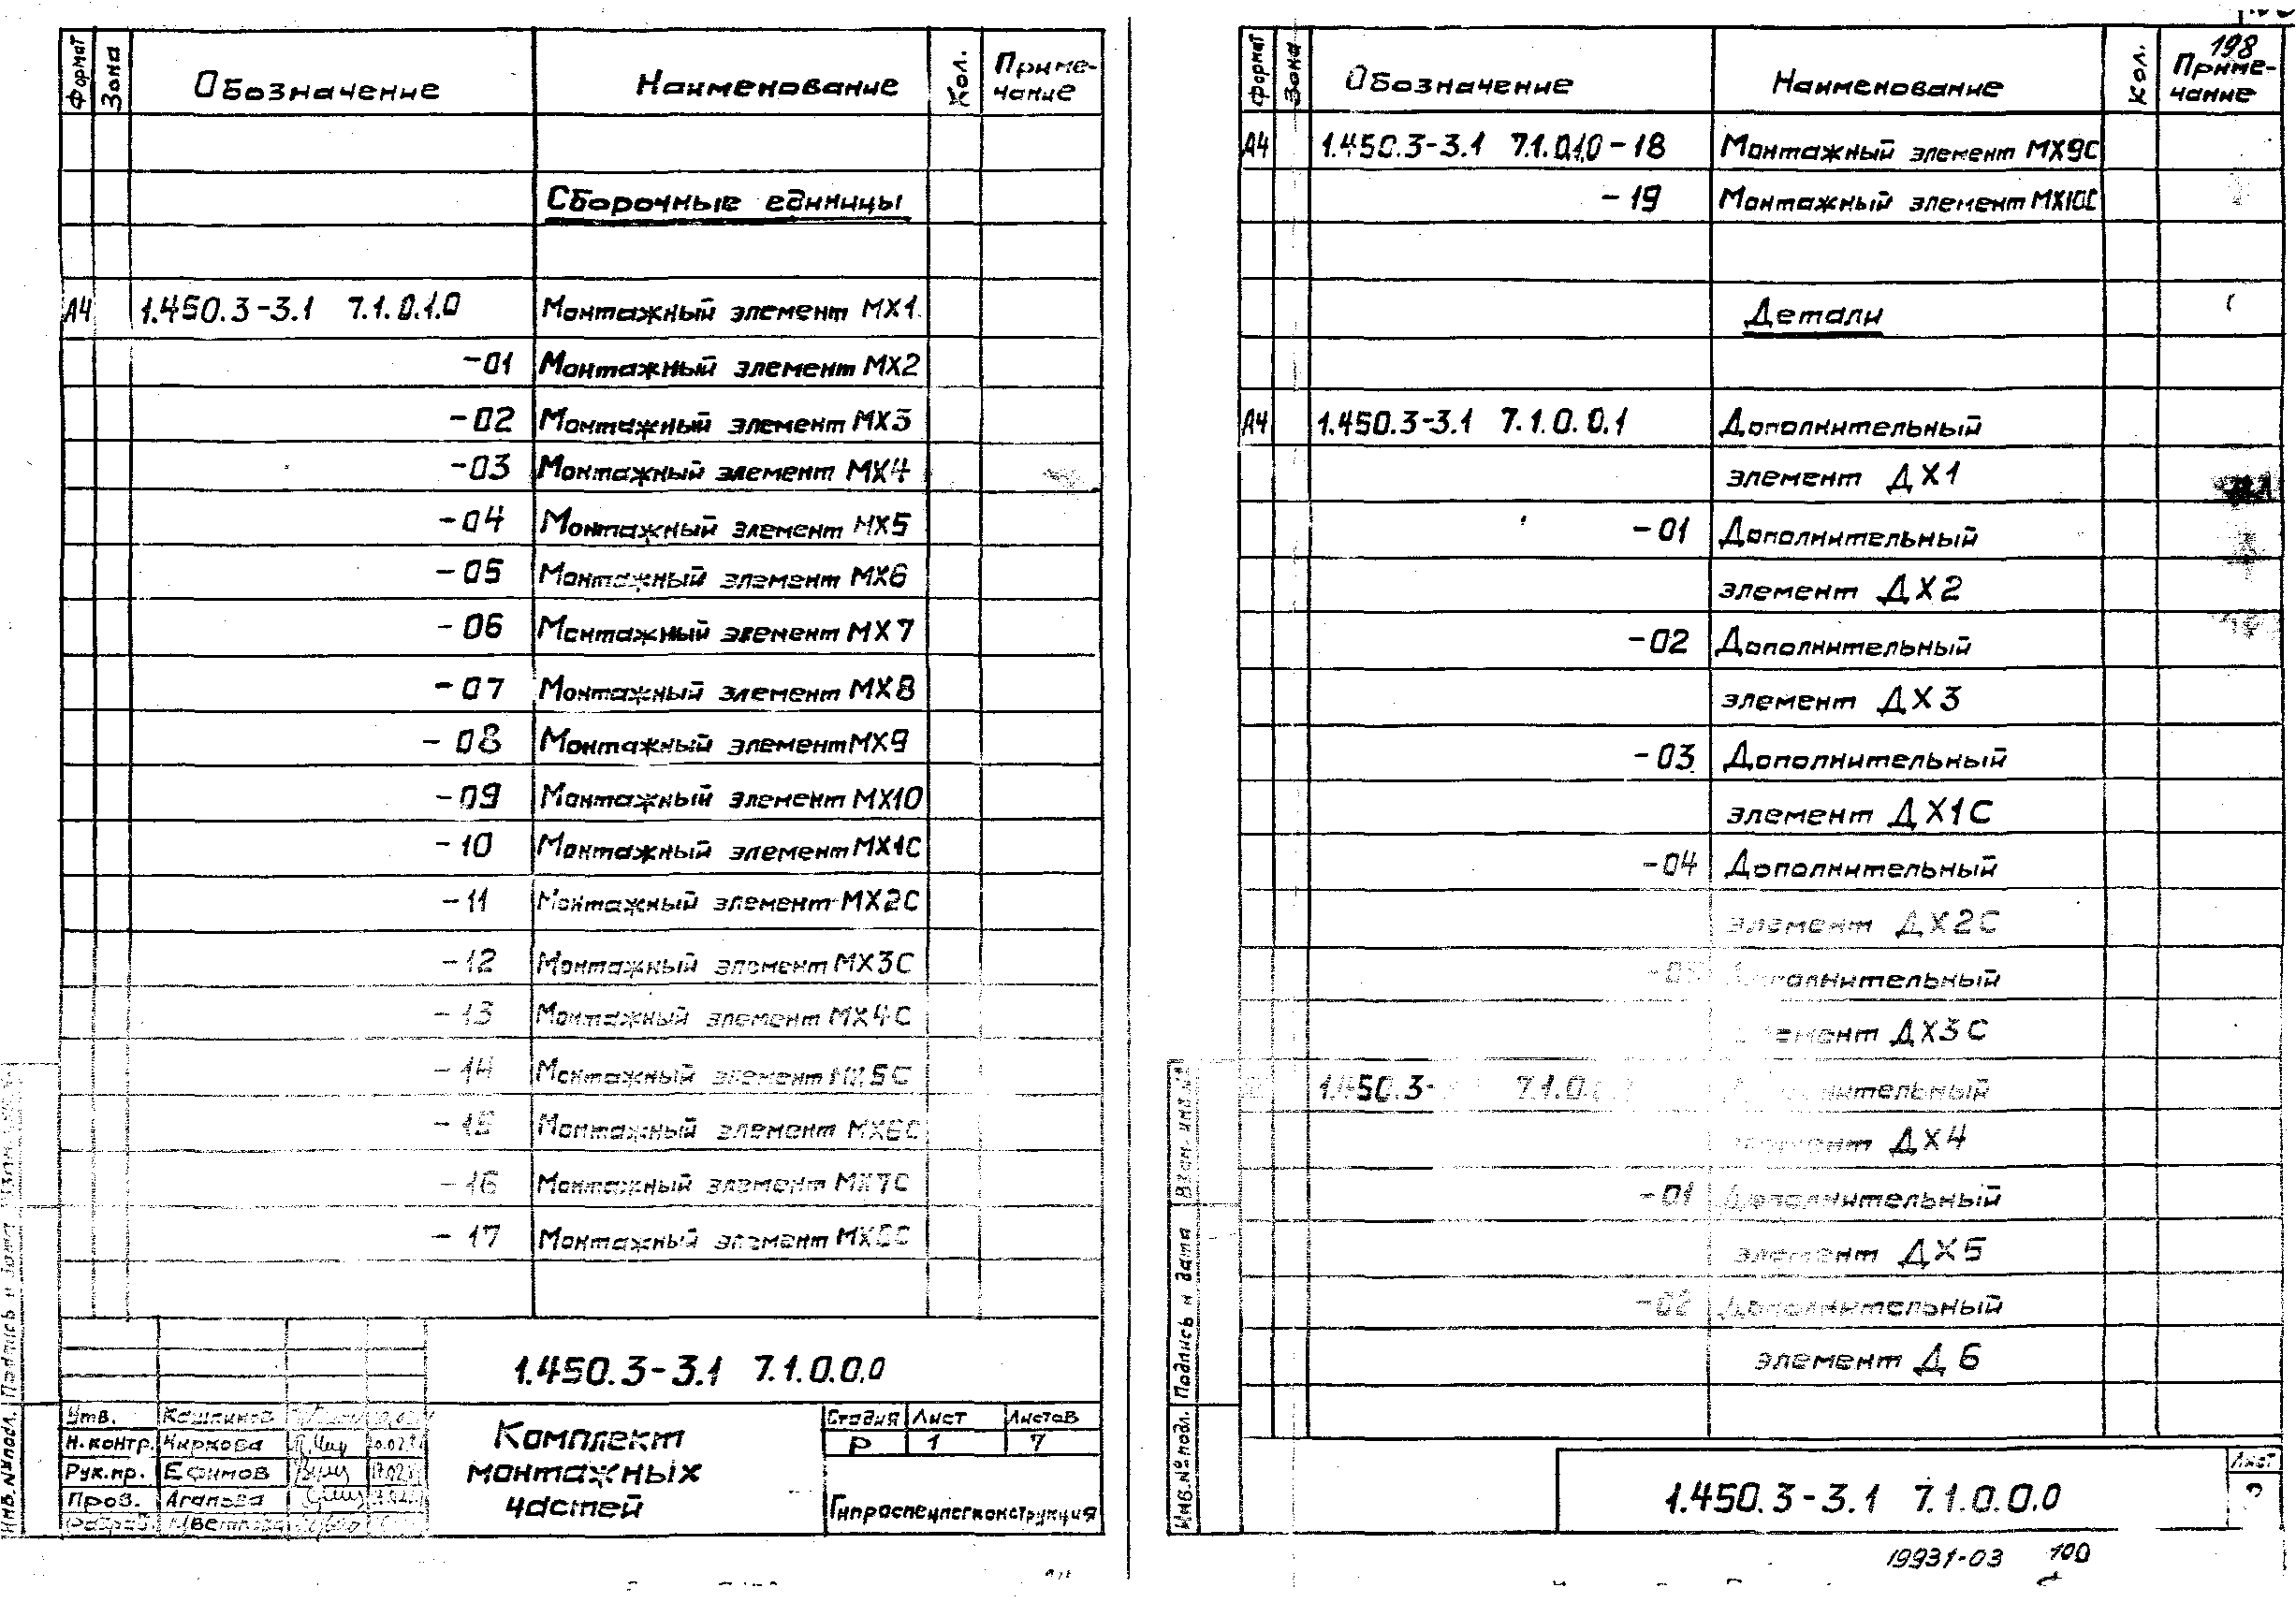 Формат Зона Обозначение Наименование Кол. Приме-
чание
Сборочные единицы
А4 1.450.3-3.1 7.1.0.1.0 Монтажный элемент МХ1
-01 Монтажный элемент МХ2
-02 Монтажный элемент МХ3
-03 Монтажный элемент МХ4
-04 Монтажный элемент МХ5
-05 Монтажный элемент МХ6
-06 Монтажный элемент МХ7
-07 Монтажный элемент МХ8
-08 Монтажный элемент МХ9
-09 Монтажный элемент МХ10
-10 Монтажный элемент МХ1С
-11 Монтажный элемент МХ2С
-12 Монтажный элемент МХ3С
-13 Монтажный элемент МХ4С
-14 Монтажный элемент МХ5С
-15 Монтажный элемент МХ6С
-16 Монтажный элемент МХ7С
-17 Монтажный элемент МХ8С
1.450.3-3.1 7.1.0.0.0
Утв.
Н.контр. Чиркова
Рук.пр. Ефимов
Пров. Агапова
Разраб.
Комплект
монтажных
частей
Стадия Лист Листов
Р 1 7
Гипроспецлегконструкция
Инв.№подл. Подпись и дата
198
Формат Зона Обозначение Наименование Кол. Приме-
чание
А4 1.450.3-3.1 7.1.0.1.0-18 Монтажный элемент МХ9С
-19 Монтажный элемент МХ10С
Детали
А4 1.450.3-3.1 7.1.0.0.1 Дополнительный
элемент ДХ1
-01 Дополнительный
элемент ДХ2
-02 Дополнительный
элемент ДХ3
-03 Дополнительный
элемент ДХ1С
-04 Дополнительный
элемент ДХ2С
-05 Дополнительный
элемент ДХ3С
1.450.3- 7.1.0. Дополнительный
элемент ДХ4
-01 Дополнительный
элемент ДХ5
-02 Дополнительный
элемент Д6
Инв.№подл. Подпись и дата Взам.инв.№
1.450.3-3.1 7.1.0.0.0
Лист
19931-03 100